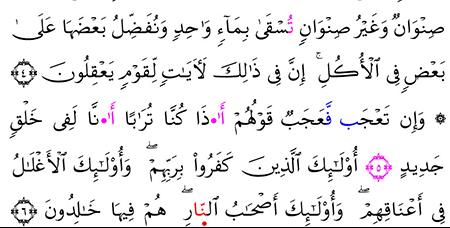 صِنۡوَانٞ وَغَيۡرُ صِنۡوَانٖ تُسۡقَىٰ بِمَآءٖ وَٰحِدٖ وَنُفَضِّلُ بَعۡضَهَا عَلَىٰ
بَعۡضٖ فِي ٱلۡأُكُلِۚ إِنَّ فِي ذَٰلِكَ لَأٓيَٰتٖ لِّقَوۡمٖ يَعۡقِلُونَ ﴿٤﴾
۞ وَإِن تَعۡجَب فَّعَجَبٞ قَوۡلُهُمُۥٓ أَ•ذَا كُنَّا تُرَٰبًا أَ•نَّا لَفِي خَلۡقٖ
جَدِيدٍ ﴿٥﴾ أُوْلَٰٓئِكَ ٱلَّذِينَ كَفَرُواْ بِرَبِّهِمۡۖ وَأُوْلَٰٓئِكَ ٱلۡأَغۡلَٰلُ
فِيٓ أَعۡنَاقِهِمۡۖ وَأُوْلَٰٓئِكَ أَصۡحَٰبُ ٱلنّ۪ارِۖ هُمۡ فِيهَا خَٰلِدُونَ ﴿٦﴾